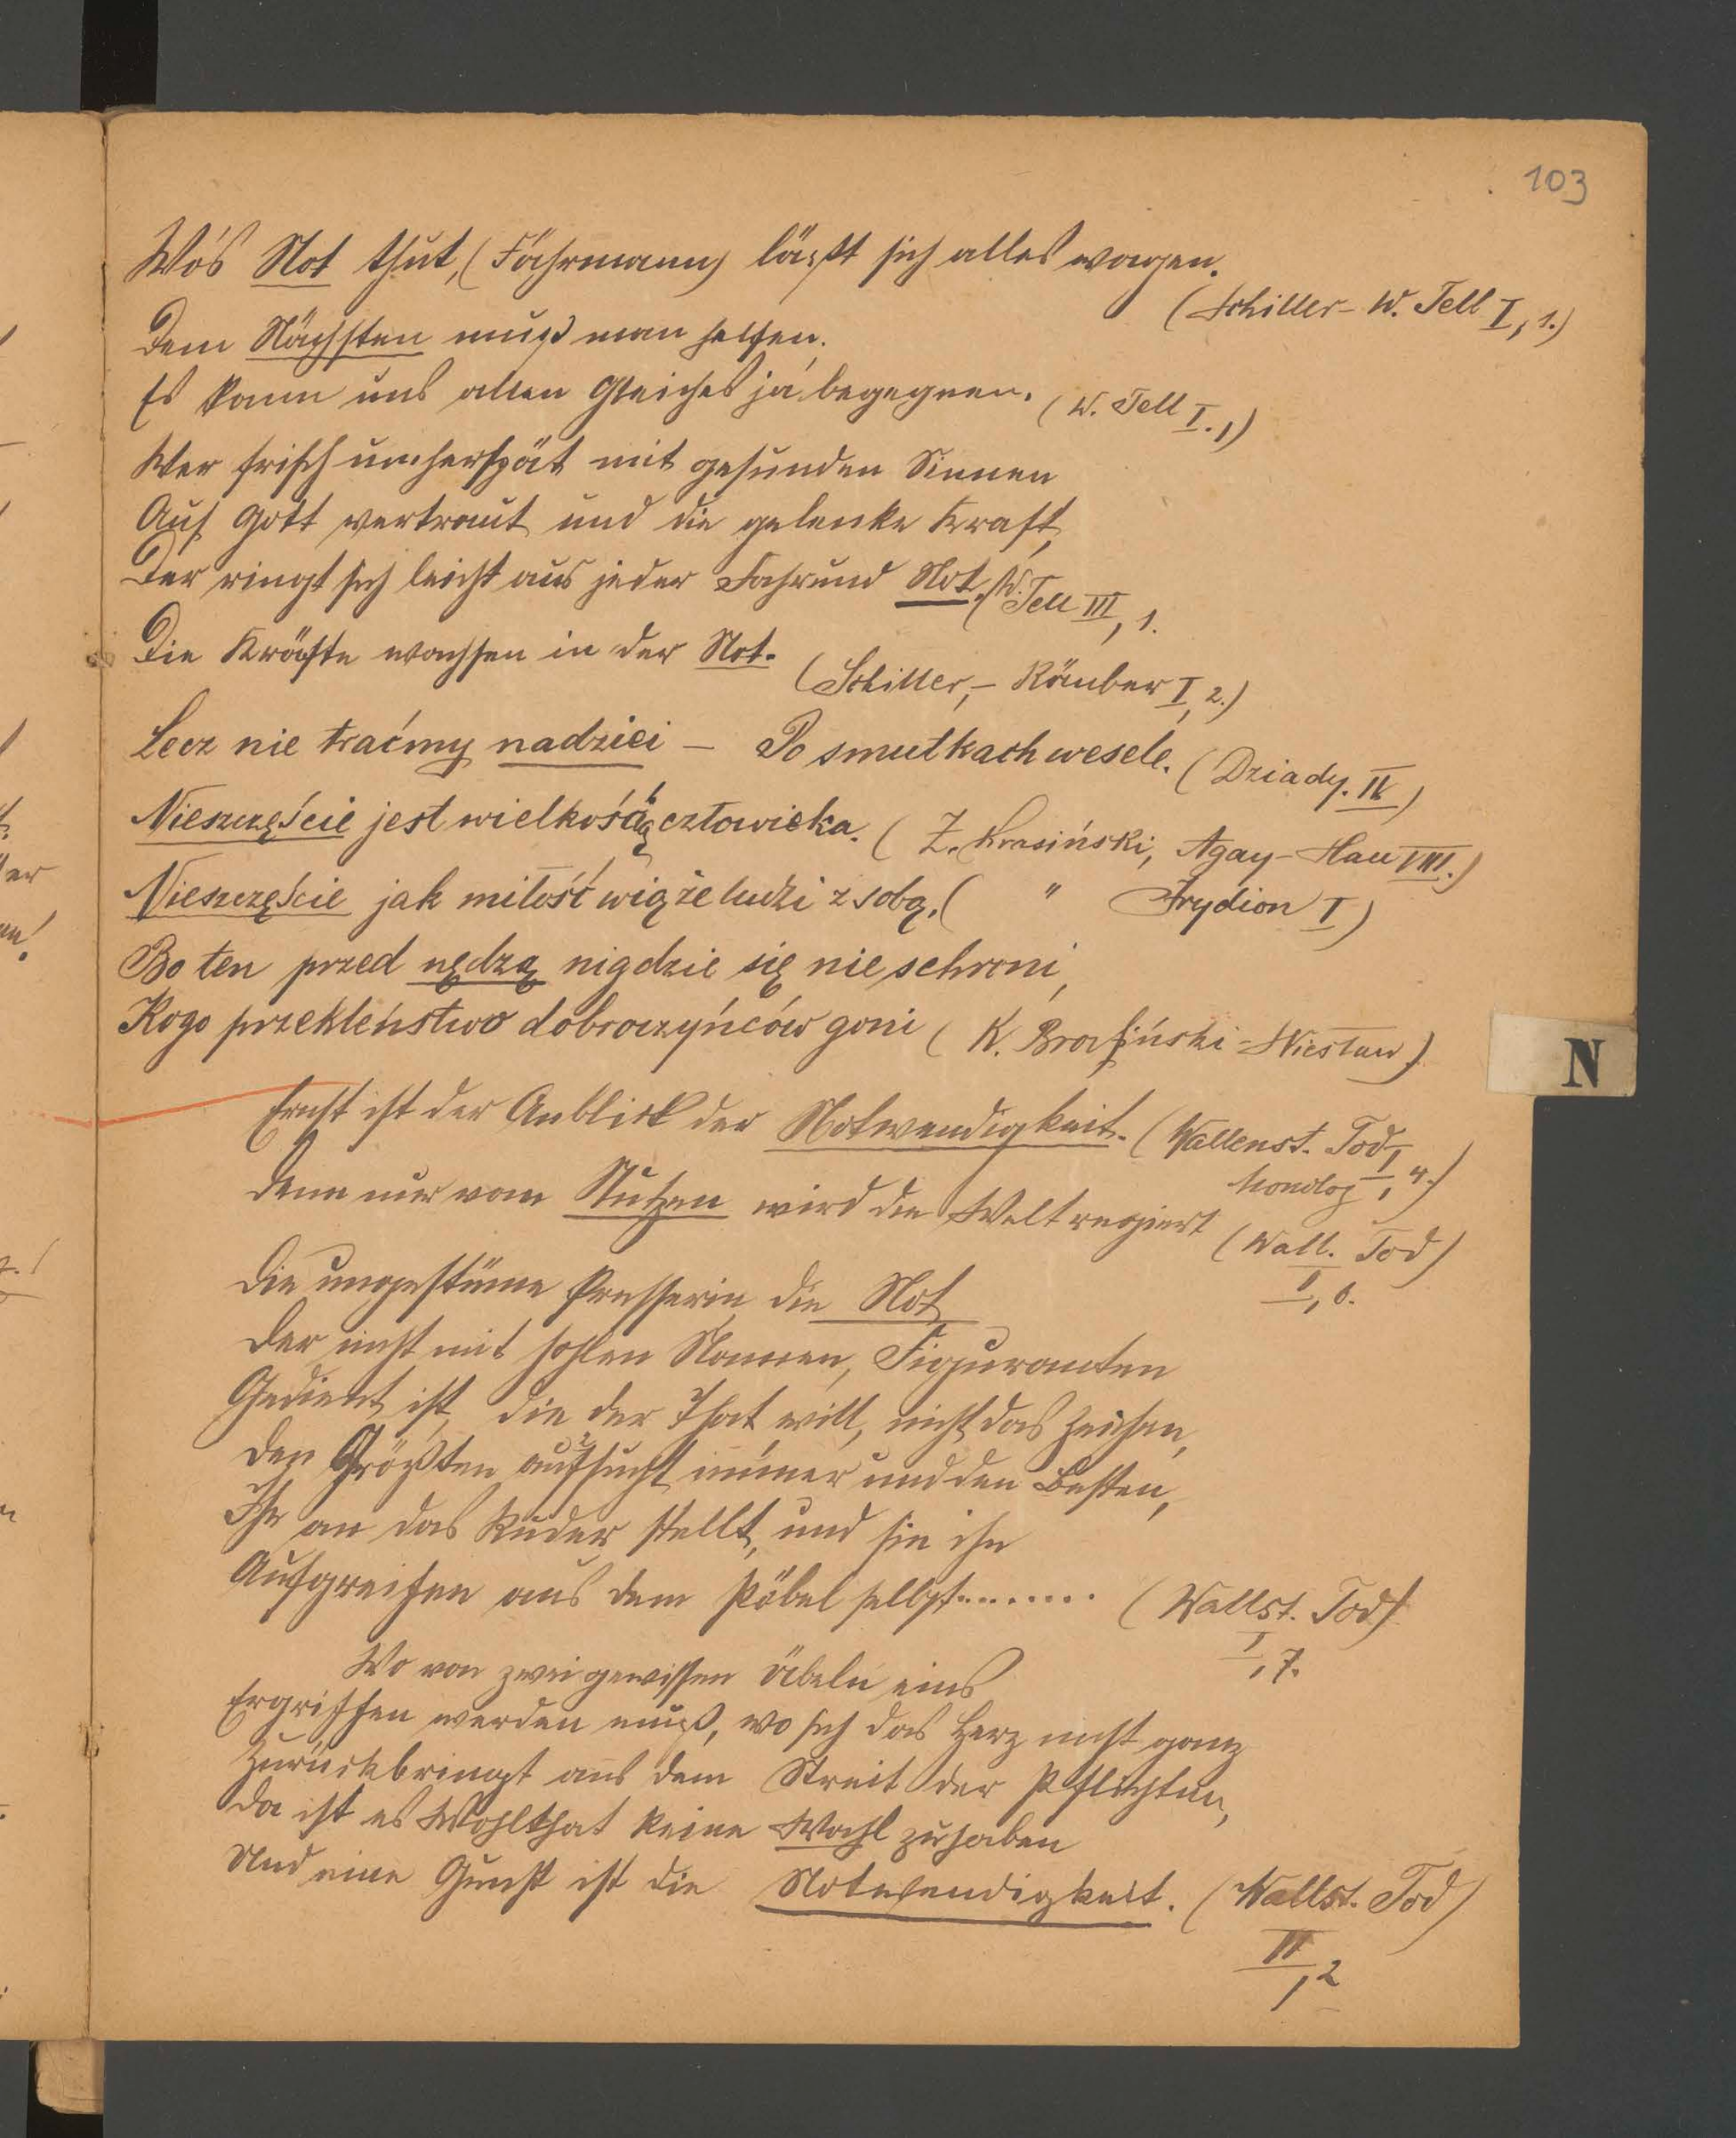 103
Wo's Not thut, (Fährmann) läszt sich alles wagen.
(Schiller - W. Tell I, 1.)
Dem Nächsten muß man helfen,
Es kann uns allen Gleiches ja begegnen. (W. Tell I. 1)
Wer frisch umherspät mit gesunden Sinnen
Auf Gott vertraut und die gelenke Kraft,
Der ringt sich leicht aus jeder Fahr und Not. (W. Tell III, 1.
Die Kräfte wachsen in der Not. (Schiller, - Räuber I, 2.)
Lecz nie traćmy nadziei - Po smutkach wesele. (Dziady. IV)
Nieszczęście jest wielkością człowieka. (Z. Krasiński, Agay-Han VIII.)
Nieszczęście jak miłość wiąże ludzi z sobą. ( " Irydion I)
Bo ten przed nędzą nigdzie się nie schroni,
Kogo przekleństwo dobroczyńców goni (K. Brodziński - Wiesław)
N
Ernst ist der Anblick der Notwendigkeit. (Wallenst. Tod,
Monolog I, 4.)
Denn nur vom Nutzen wird die Welt regiert (Wall. Tod)
I, 6.
Die ungestüme Presserin, die Not
Der nicht mit hohlen Namen, Figuranten
Gedient ist, die der That will, nicht das Zeichen,
Den Größten aufsucht immer und den Besten,
Ihn an das Ruder stellt, und sie ihn
Aufgreifen aus dem Pöbel selbst........ (Wallst. Tod)
I, 7.
Wo von zwei gewissen Übeln eins
Ergriffen werden muß, wo sich das Herz nicht ganz
Zurückbringt aus dem Streit der Pflichten,
Da ist es Wohlthat keine Wahl zu haben
Und eine Gunst ist die Notwendigkeit. (Wallst. Tod)
II, 2